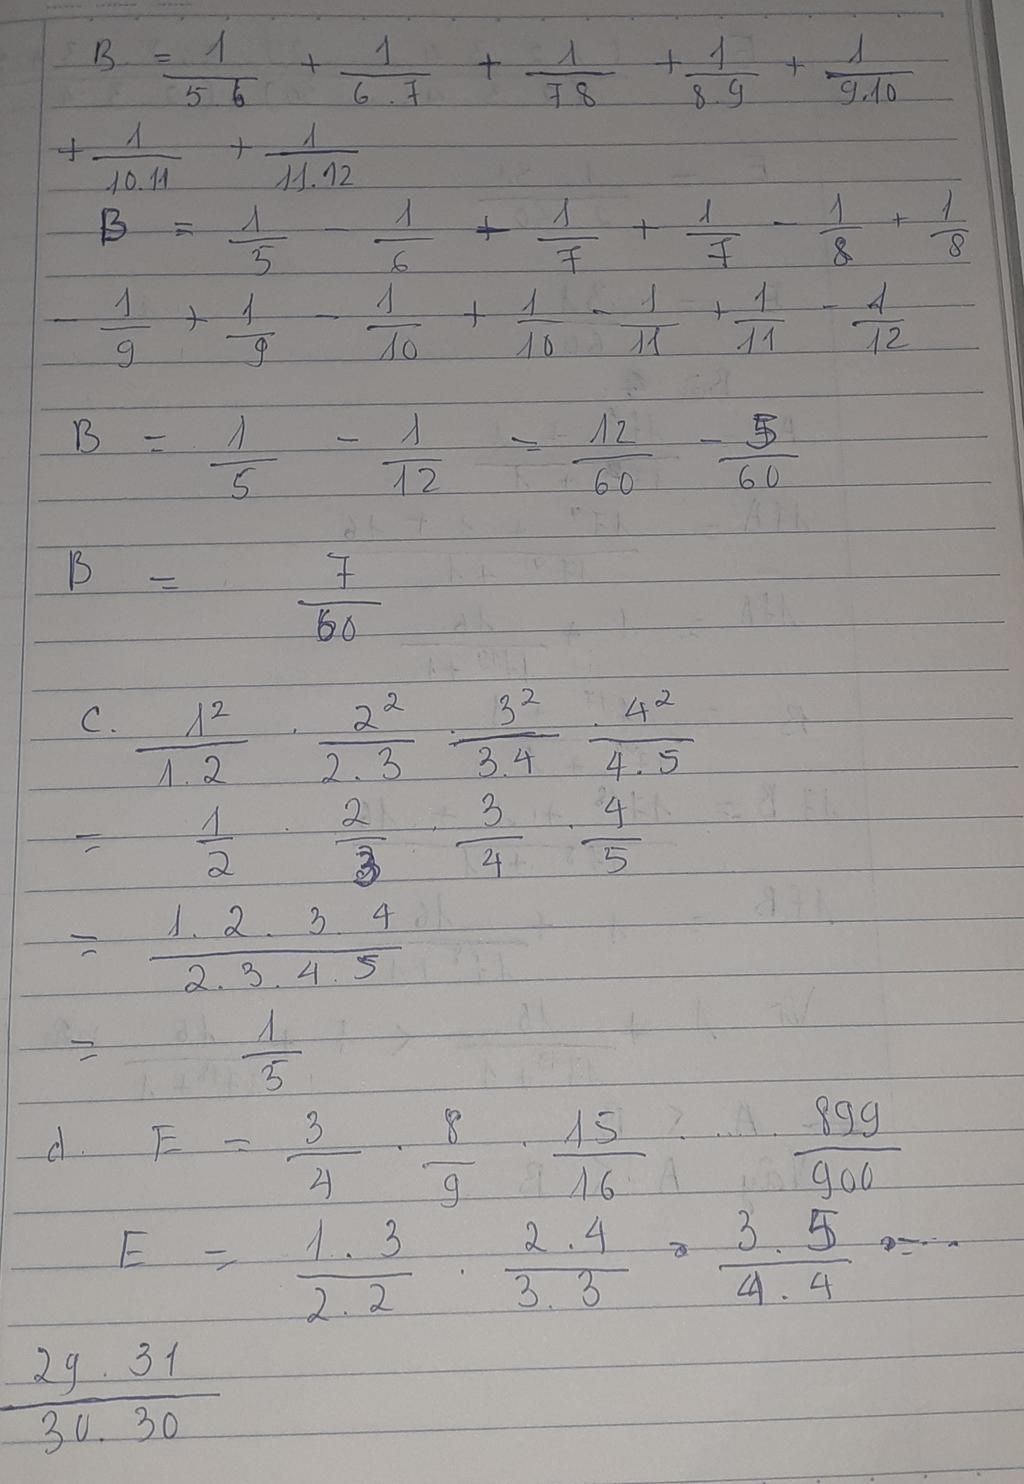 B = 1/5.6 + 1/6.7 + 1/7 8 + 1/8.9 + 1/9.10
+ 1/10.11 + 1/11.12
B = 1/5 - 1/6 + 1/7 + 1/7 - 1/8 + 1/8
- 1/9 + 1/9 - 1/10 + 1/10 - 1/11 + 1/11 - 1/12
B = 1/5 - 1/12 = 12/60 - 5/60
B = 7/60
C. 1²/1.2 . 2²/2.3 . 3²/3.4 . 4²/4.5
= 1/2 . 2/3 . 3/4 . 4/5
= 1.2.3.4/2.3.4.5
= 1/5
d. E = 3/4 . 8/9 . 15/16 . ... 899/900
E = 1.3/2.2 . 2.4/3.3 . 3.5/4.4 ....
29.31/30.30